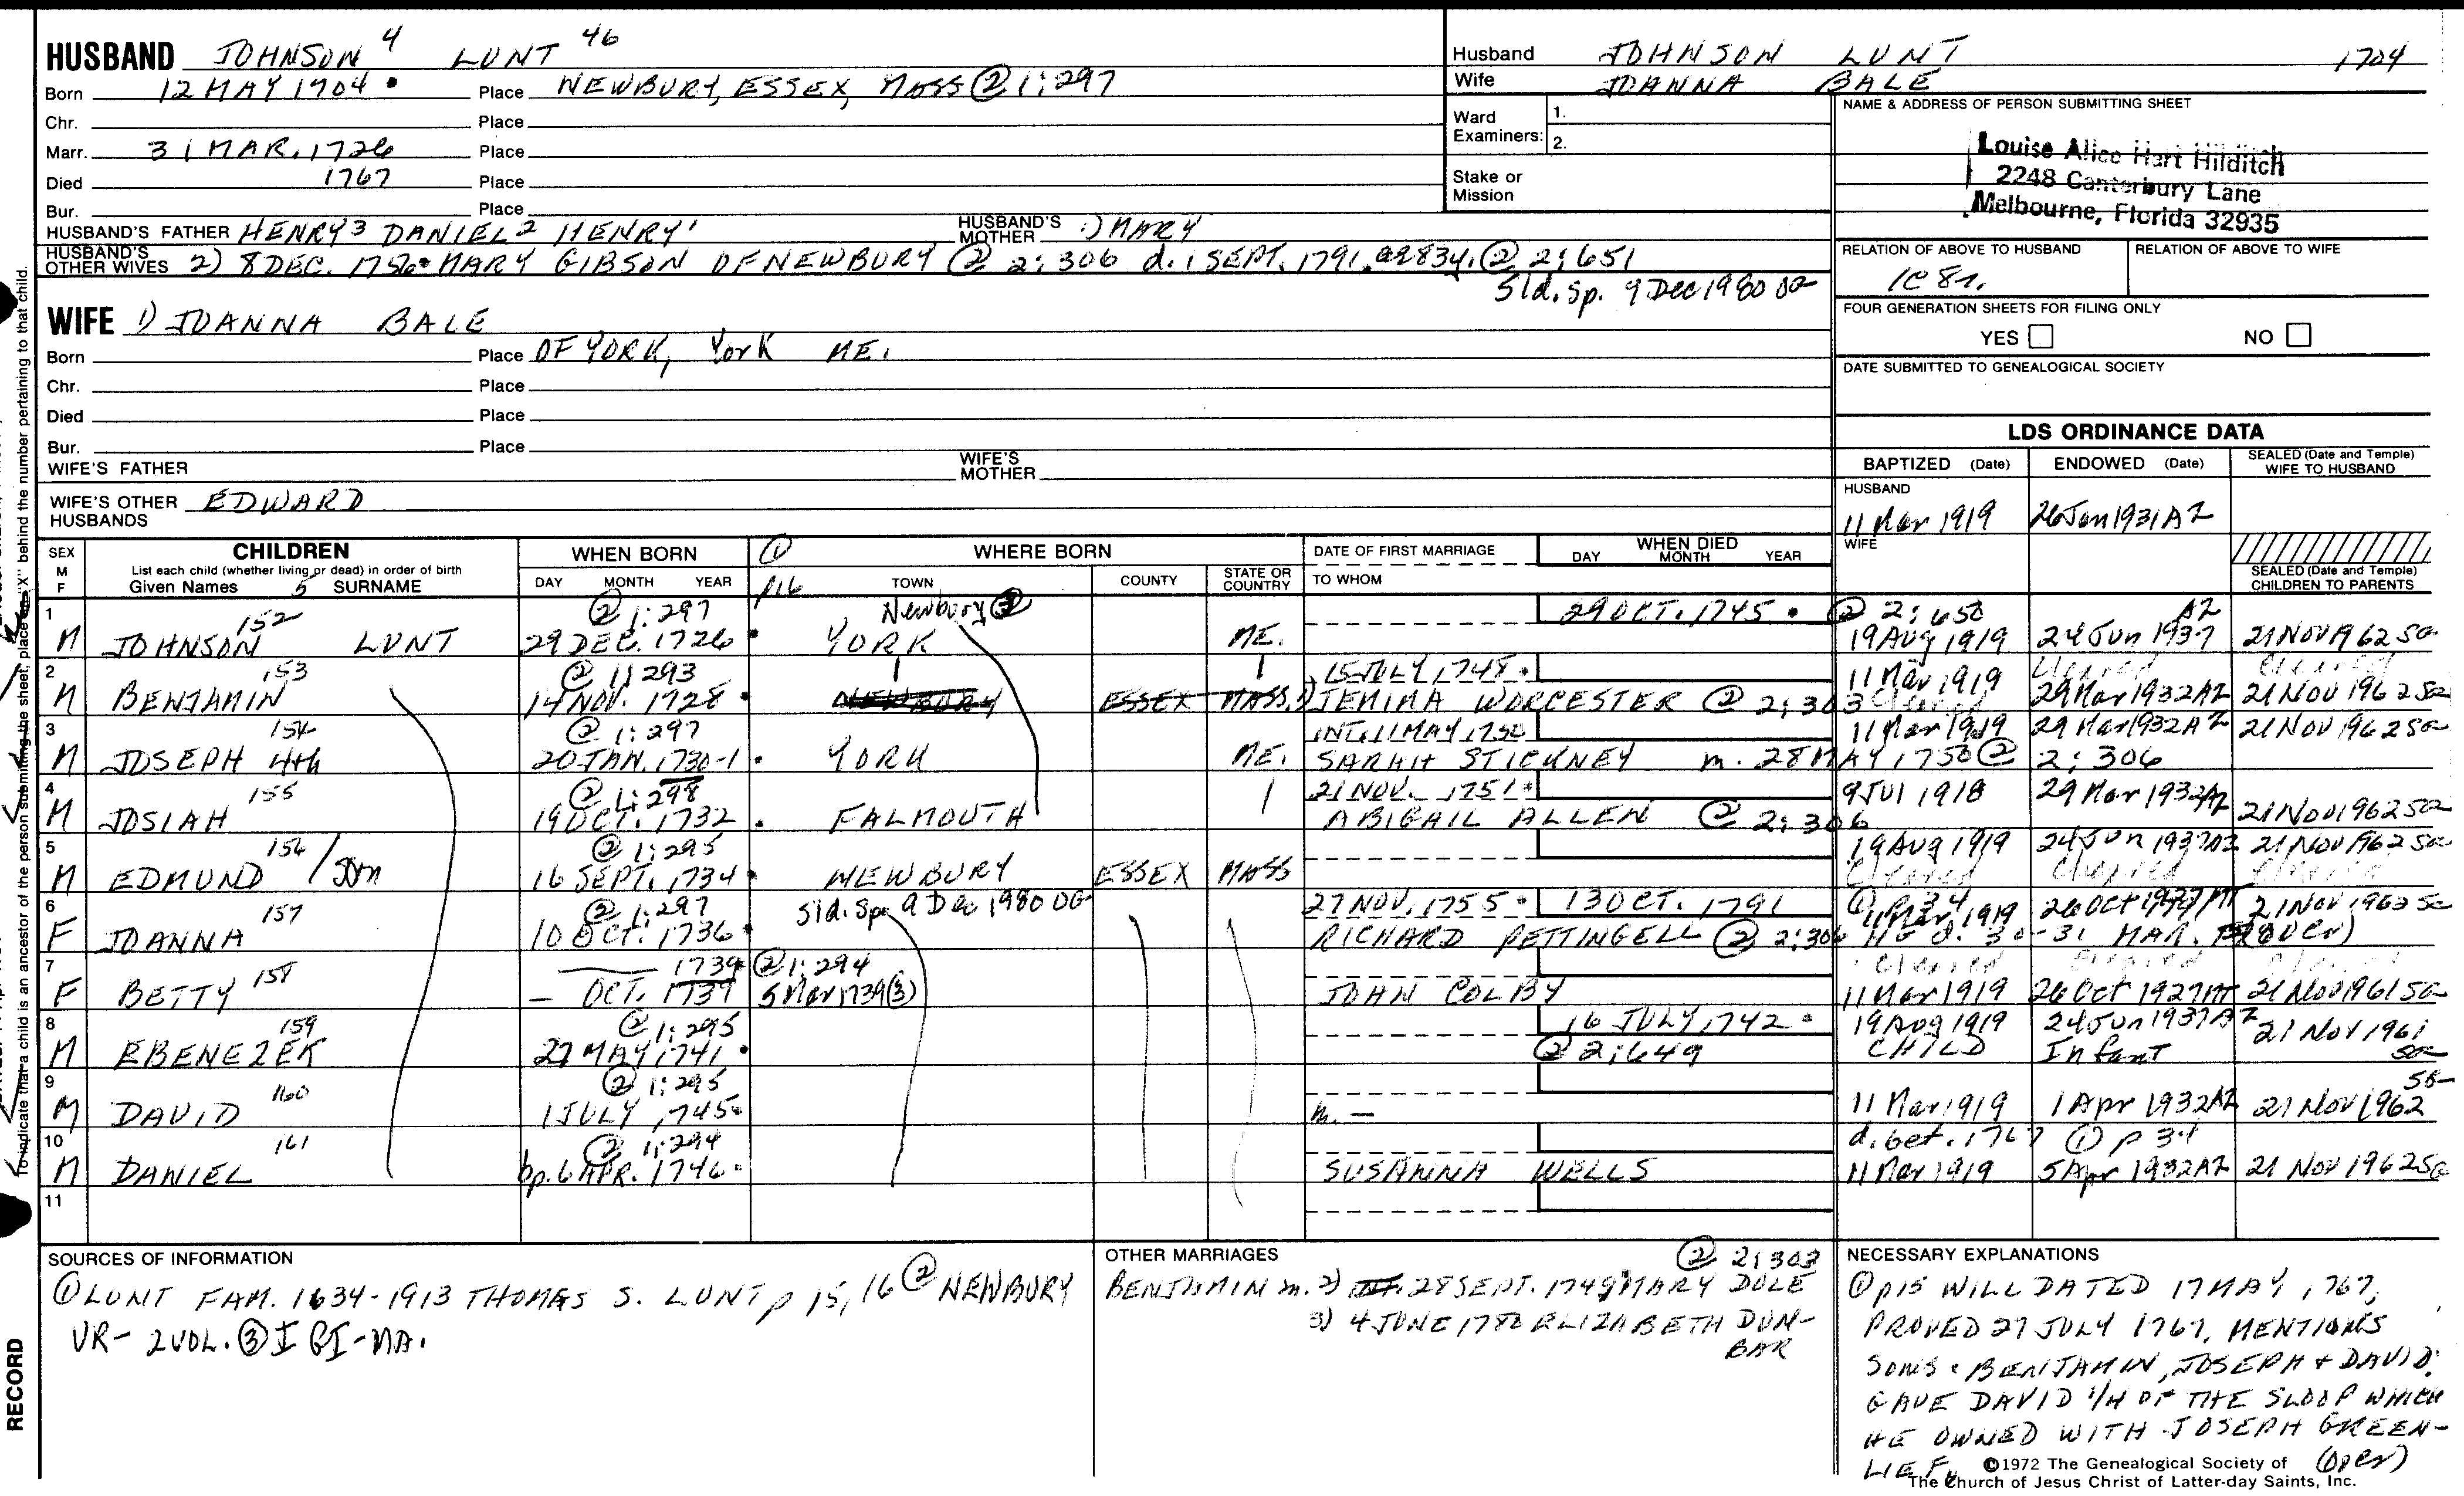 HUSBAND JOHNSON 4 LUNT 46
Born 12 MAY 1704 • Place NEWBURY, ESSEX, MASS ② 1:297
Chr. Place
Marr. 31 MAR. 1726 Place
Died 1767 Place
Bur. Place
HUSBAND'S FATHER HENRY 3 DANIEL 2 HENRY 1 HUSBAND'S MOTHER 1) MARY
HUSBAND'S OTHER WIVES 2) 8 DEC. 1756 • MARY GIBSON OF NEWBURY ② 2:306 d. 1 SEPT. 1791. ae 83y. ② 2:651
Sld. Sp. 9 Dec 1980
WIFE 1) JOANNA BALE
Born Place OF YORK, York ME.
Chr. Place
Died Place
Bur. Place
WIFE'S FATHER WIFE'S MOTHER
WIFE'S OTHER HUSBANDS EDWARD
Husband JOHNSON LUNT 1704
Wife JOANNA BALE
Ward Examiners: 1.
2.
Stake or Mission
NAME & ADDRESS OF PERSON SUBMITTING SHEET
Louise Alice Hart Hilditch
2248 Canterbury Lane
Melbourne, Florida 32935
RELATION OF ABOVE TO HUSBAND RELATION OF ABOVE TO WIFE
1C 8r.
FOUR GENERATION SHEETS FOR FILING ONLY
YES NO
DATE SUBMITTED TO GENEALOGICAL SOCIETY
LDS ORDINANCE DATA
BAPTIZED (Date) ENDOWED (Date) SEALED (Date and Temple) WIFE TO HUSBAND
HUSBAND
11 Mar 1919 26 Jan 1931 AZ
WIFE
SEALED (Date and Temple) CHILDREN TO PARENTS
To indicate that a child is an ancestor of the person submitting the sheet, place an "X" behind the number pertaining to that child.
SEX M F CHILDREN WHEN BORN ① WHERE BORN DATE OF FIRST MARRIAGE WHEN DIED
List each child (whether living or dead) in order of birth DAY MONTH YEAR
Given Names 5 SURNAME DAY MONTH YEAR p16 TOWN COUNTY STATE OR COUNTRY TO WHOM
1 152 ② 1:297 Newbury ③ 29 OCT. 1745 • ② 2:650 AZ
M JOHNSON LUNT 29 DEC. 1726 • YORK ME. 19 Aug 1919 24 Jun 1937 21 Nov 1962
2 153 ② 1:293 15 JULY 1748 • 11 Mar 1919 Cleared Cleared
M BENJAMIN 14 NOV. 1728 • NEWBURY ESSEX MASS. 1) JEMIMA WORCESTER ② 2:303 Cleared 29 Mar 1932 AZ 21 Nov 1962
3 154 ② 1:297 INT. 11 MAY 1750 11 Mar 1919 29 Mar 1932 AZ 21 Nov 1962
M JOSEPH 4th 20 JAN. 1730-1 • YORK ME. SARAH STICKNEY m. 28 MAY 1750 ② 2:306
4 155 ② 1:298 21 NOV. 1751 • 9 Jul 1918 29 Mar 1932 AZ
M JOSIAH 19 OCT. 1732 • FALMOUTH ABIGAIL ALLEN ② 2:306 21 Nov 1962
5 156 ② 1:295 19 Aug 1919 24 Jun 1937 AZ 21 Nov 1962
M EDMUND / 16 SEPT. 1734 • NEWBURY ESSEX MASS Cleared Cleared Cleared
6 157 ② 1:297 Sld. Sp. 9 Dec 1980 27 NOV. 1755 • 13 OCT. 1791 ① p 34 11 Mar 1919 21 Nov 1963
F JOANNA 10 Oct. 1736 • RICHARD PETTINGELL ② 2:306 HE d. 30-31 MAR. (over)
7 158 1739 • ② 1:294 Cleared Cleared
F BETTY — OCT. 1739 5 Mar 1739 ③ JOHN COLBY 11 Mar 1919 26 Oct 1927 21 Nov 1961
8 159 ② 1:295 16 JULY 1742 • 19 Aug 1919 24 Jun 1937 AZ 21 Nov 1961
M EBENEZER 27 MAY 1741 • ② 2:649 CHILD Infant
9 160 ② 1:295
M DAVID 1 JULY 1745 • m. — 11 Mar 1919 1 Apr 1932 AZ 21 Nov 1962
10 161 ② 1:294 d. bet. 1767 ① p 34
M DANIEL bp. 6 APR. 1746 • SUSANNA WELLS 11 Mar 1919 5 Apr 1932 AZ 21 Nov 1962
11
SOURCES OF INFORMATION
① LUNT FAM. 1634-1913 THOMAS S. LUNT p 15, 16 ② NEWBURY
VR - 2 VOL. ③ IGI - MA.
OTHER MARRIAGES ② 2:303
BENJAMIN m. 2) INT. 28 SEPT. 1749 MARY DOLE
3) 4 JUNE 1780 ELIZABETH DUN-
BAR
NECESSARY EXPLANATIONS
① p15 WILL DATED 17 MAY 1767,
PROVED 27 JULY 1767, MENTIONS
SONS: BENJAMIN, JOSEPH + DAVID.
GAVE DAVID 1/4 OF THE SLOOP WHICH
HE OWNED WITH JOSEPH GREEN-
LIEF. (over)
©1972 The Genealogical Society of
The Church of Jesus Christ of Latter-day Saints, Inc.
RECORD